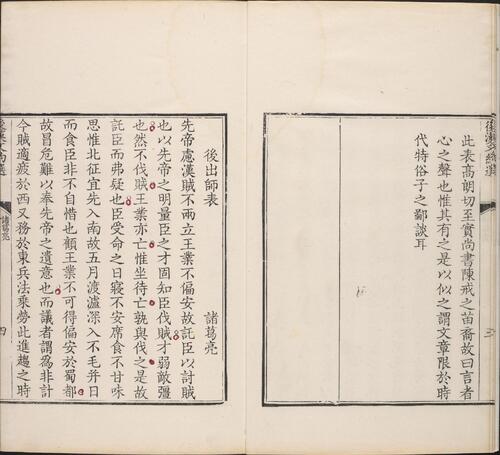 此表高朗切至實尚書陳戒之苗裔故曰言者
心之聲也惟其有之是以似之謂文章限於時
代特俗子之鄙談耳
後出師表
諸葛亮
先帝慮漢賊不兩立王業不偏安故託臣以討賊
也以先帝之明量臣之才固知臣伐賊才弱敵彊
也然不伐賊王業亦亡惟坐待亡孰與伐之是故
託臣而弗疑也臣受命之日寢不安席食不甘味
思惟北征宜先入南故五月渡瀘深入不毛并日
而食臣非不自惜也顧王業不可得偏安於蜀都
故冒危難以奉先帝之遺意也而議者謂為非計
今賊適疲於西又務於東兵法乗勞此進趨之時
諸葛亮
四